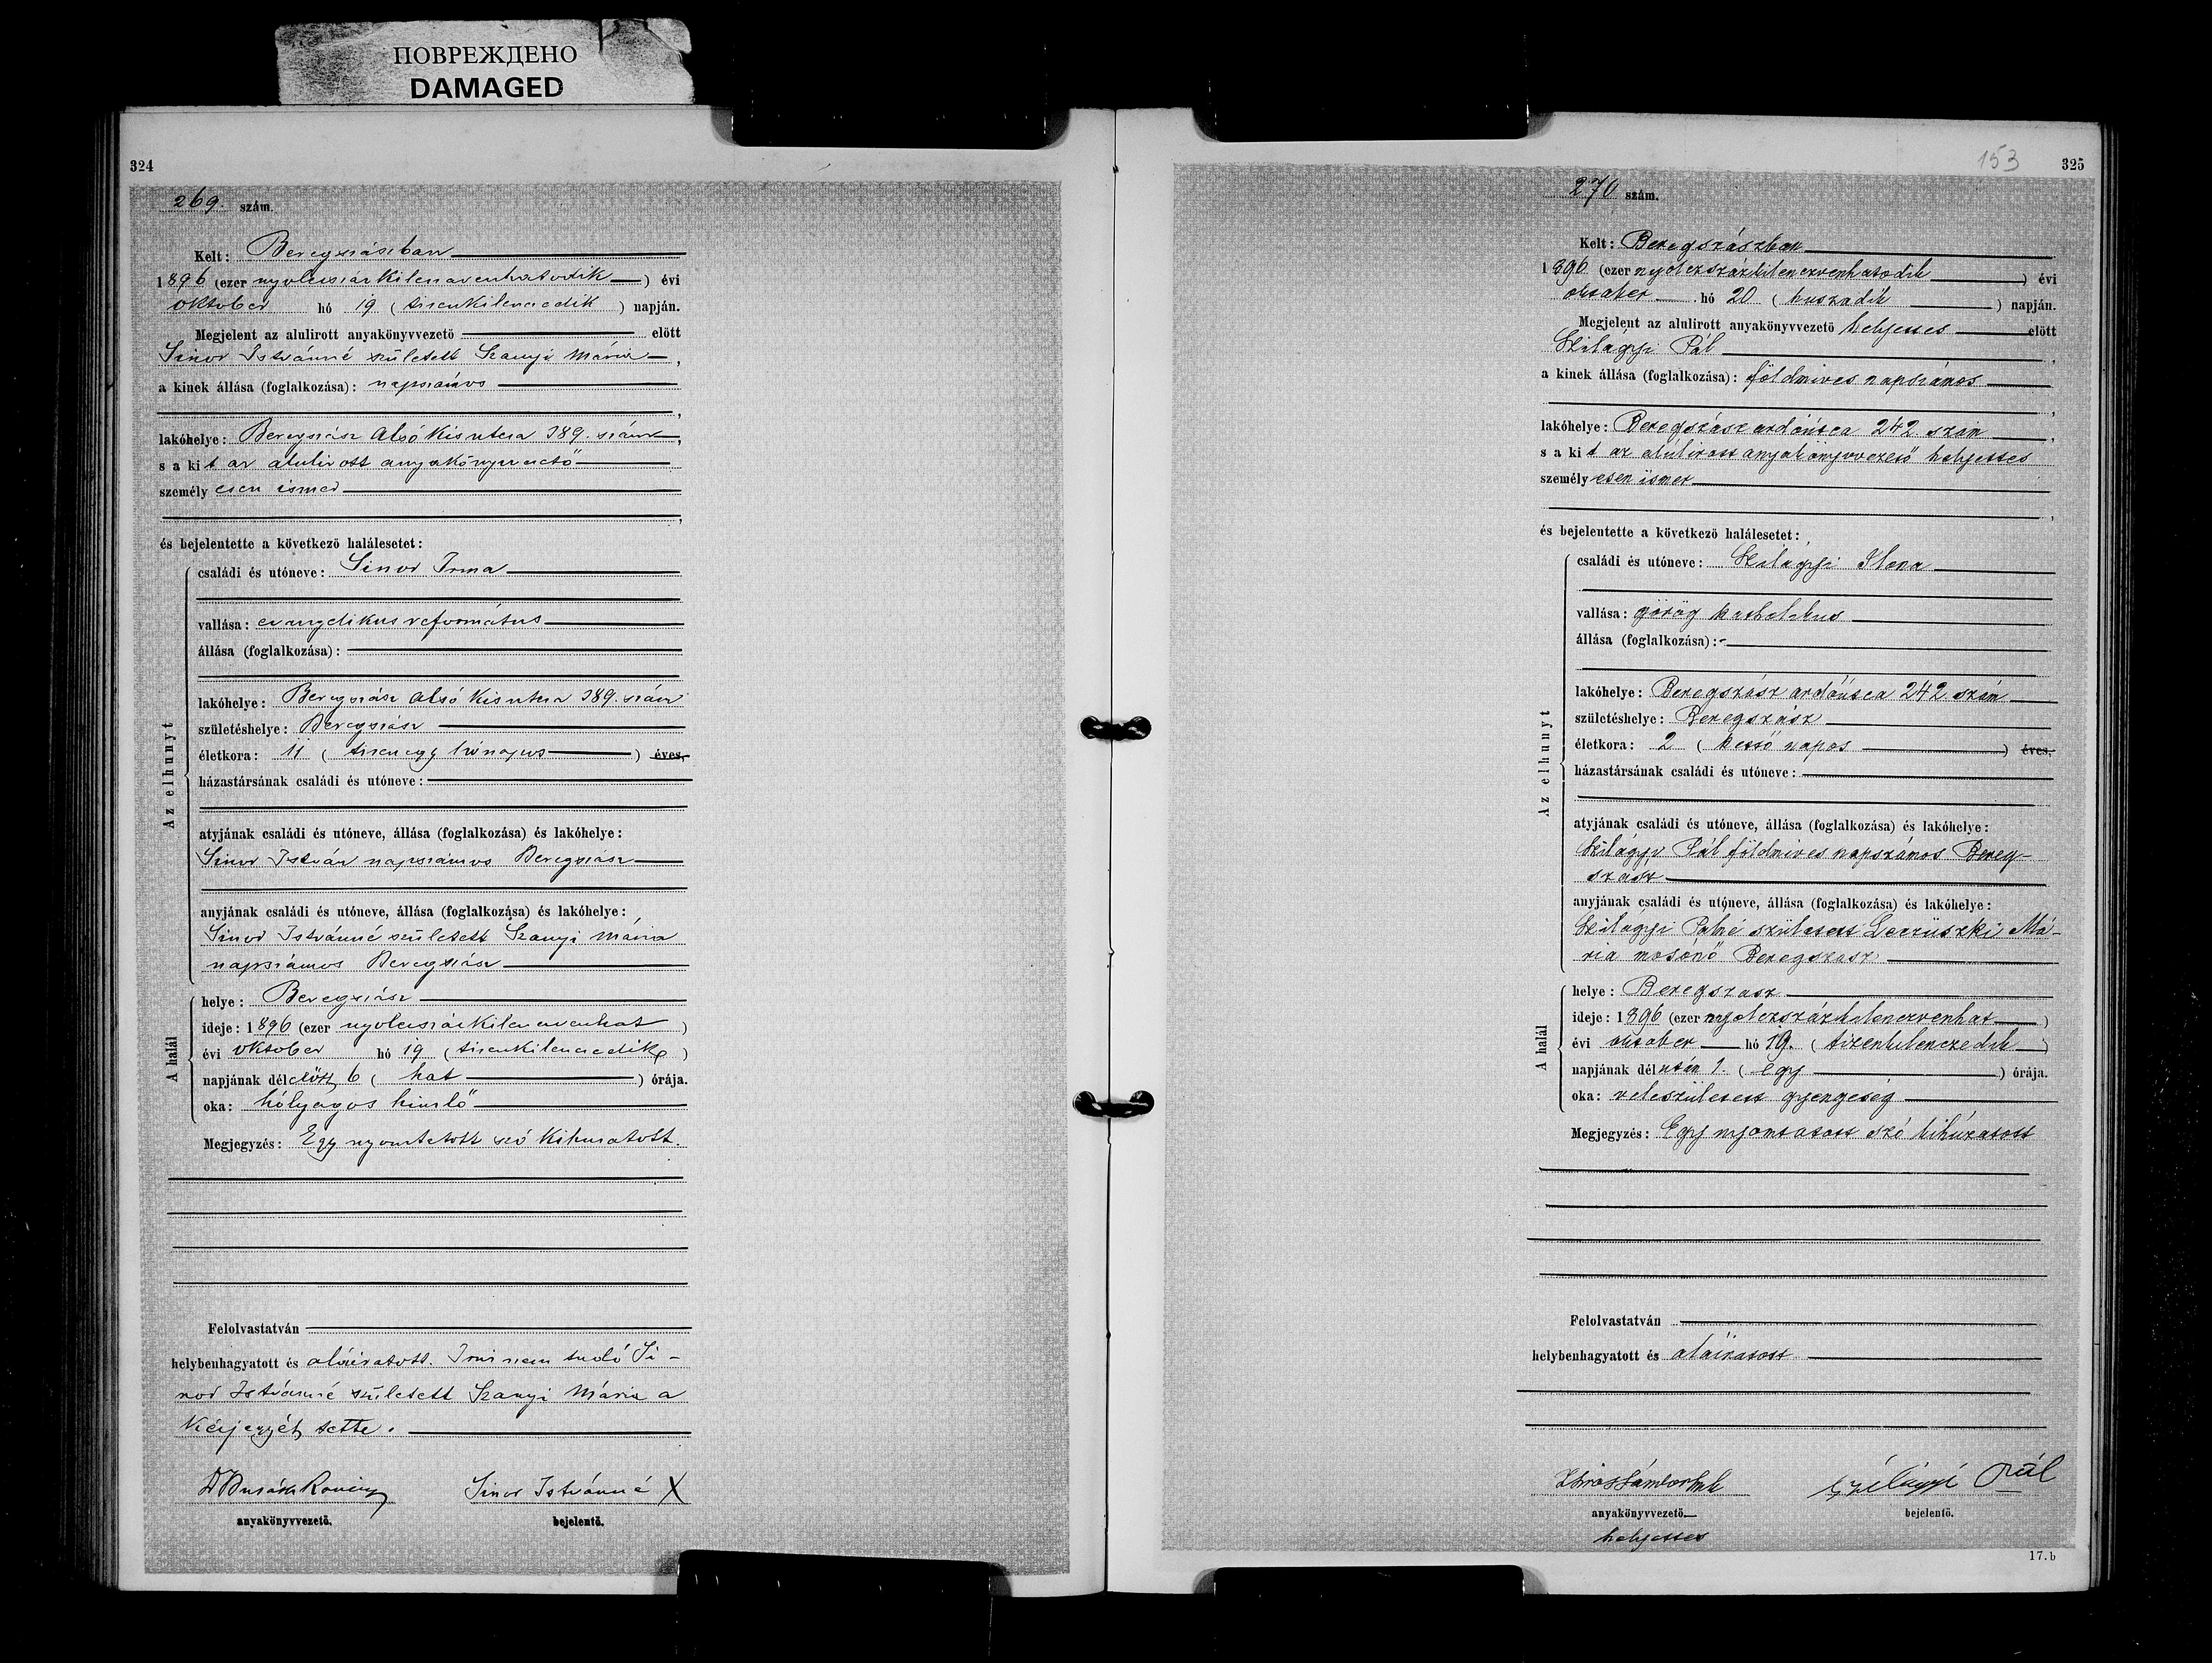 ПОВРЕЖДЕНО
DAMAGED
324
269. szám.
Kelt: Beregszászban
1896 (ezer nyolczszázkilenczvenhatodik) évi
oktober hó 19 (tizenkilenczedik) napján.
Megjelent az alulirott anyakönyvvezető előtt
Sinor Istvánné született Szanyi Mária,
a kinek állása (foglalkozása): napszámos
lakóhelye: Beregszász Alsó kis utcza 389. szám,
s a kit az alulirott anyakönyvvezető
személyesen ismer
és bejelentette a következő halálesetet:
Az elhunyt
családi és utóneve: Sinor Irma
vallása: evangelikus református
állása (foglalkozása):
lakóhelye: Beregszász Alsó kis utcza 389. szám
születéshelye: Beregszász
életkora: 11 (tizenegy hónapos) éves,
házastársának családi és utóneve:
atyjának családi és utóneve, állása (foglalkozása) és lakóhelye:
Sinor István napszámos Beregszász
anyjának családi és utóneve, állása (foglalkozása) és lakóhelye:
Sinor Istvánné született Szanyi Mária
napszámos Beregszász
A halál
helye: Beregszász
ideje: 1896 (ezer nyolczszázkilenczvenhat)
évi oktober hó 19 (tizenkilenczedik)
napjának délelőtt 6 (hat) órája.
oka: hólyagos himlő
Megjegyzés: Egy nyomtatott szó kihuzatott.
Felolvastatván
helybenhagyatott és aláiratott. Irni nem tudó Si-
nor Istvánné született Szanyi Mária a
kézjegyét tette.
Sinor Istvánné X
anyakönyvvezető. bejelentő.
153
325
270 szám.
Kelt: Beregszászban
1896 (ezer nyolczszázkilenczvenhatodik) évi
oktober hó 20 (huszadik) napján.
Megjelent az alulirott anyakönyvvezető helyettes előtt
Szilágyi Pál,
a kinek állása (foglalkozása): földmives napszámos
lakóhelye: Beregszász ardóutca 242 szám,
s a kit az alúlirott anyakönyvvezető helyettes
személyesen ismer
és bejelentette a következő halálesetet:
Az elhunyt
családi és utóneve: Szilágyi Ilona
vallása: görög katholikus
állása (foglalkozása): -
lakóhelye: Beregszász ardóutca 242 szám
születéshelye: Beregszász
életkora: 2 (kettő napos) éves,
házastársának családi és utóneve:
atyjának családi és utóneve, állása (foglalkozása) és lakóhelye:
Szilágyi Pál földmives napszámos Bereg-
szász
anyjának családi és utóneve, állása (foglalkozása) és lakóhelye:
Szilágyi Pálné született Má-
ria mosónő Beregszasz
A halál
helye: Beregszasz
ideje: 1896 (ezer nyolczszázkilenczvenhat)
évi oktober hó 19. (tizenkilenczedik)
napjának délután 1. (egy) órája.
oka: veleszületett gyengeség
Megjegyzés: Egy nyomtatott szó kihúzatott
Felolvastatván
helybenhagyatott és aláiratott
Szilágyi Pál
anyakönyvvezető bejelentő.
helyettes
17. b